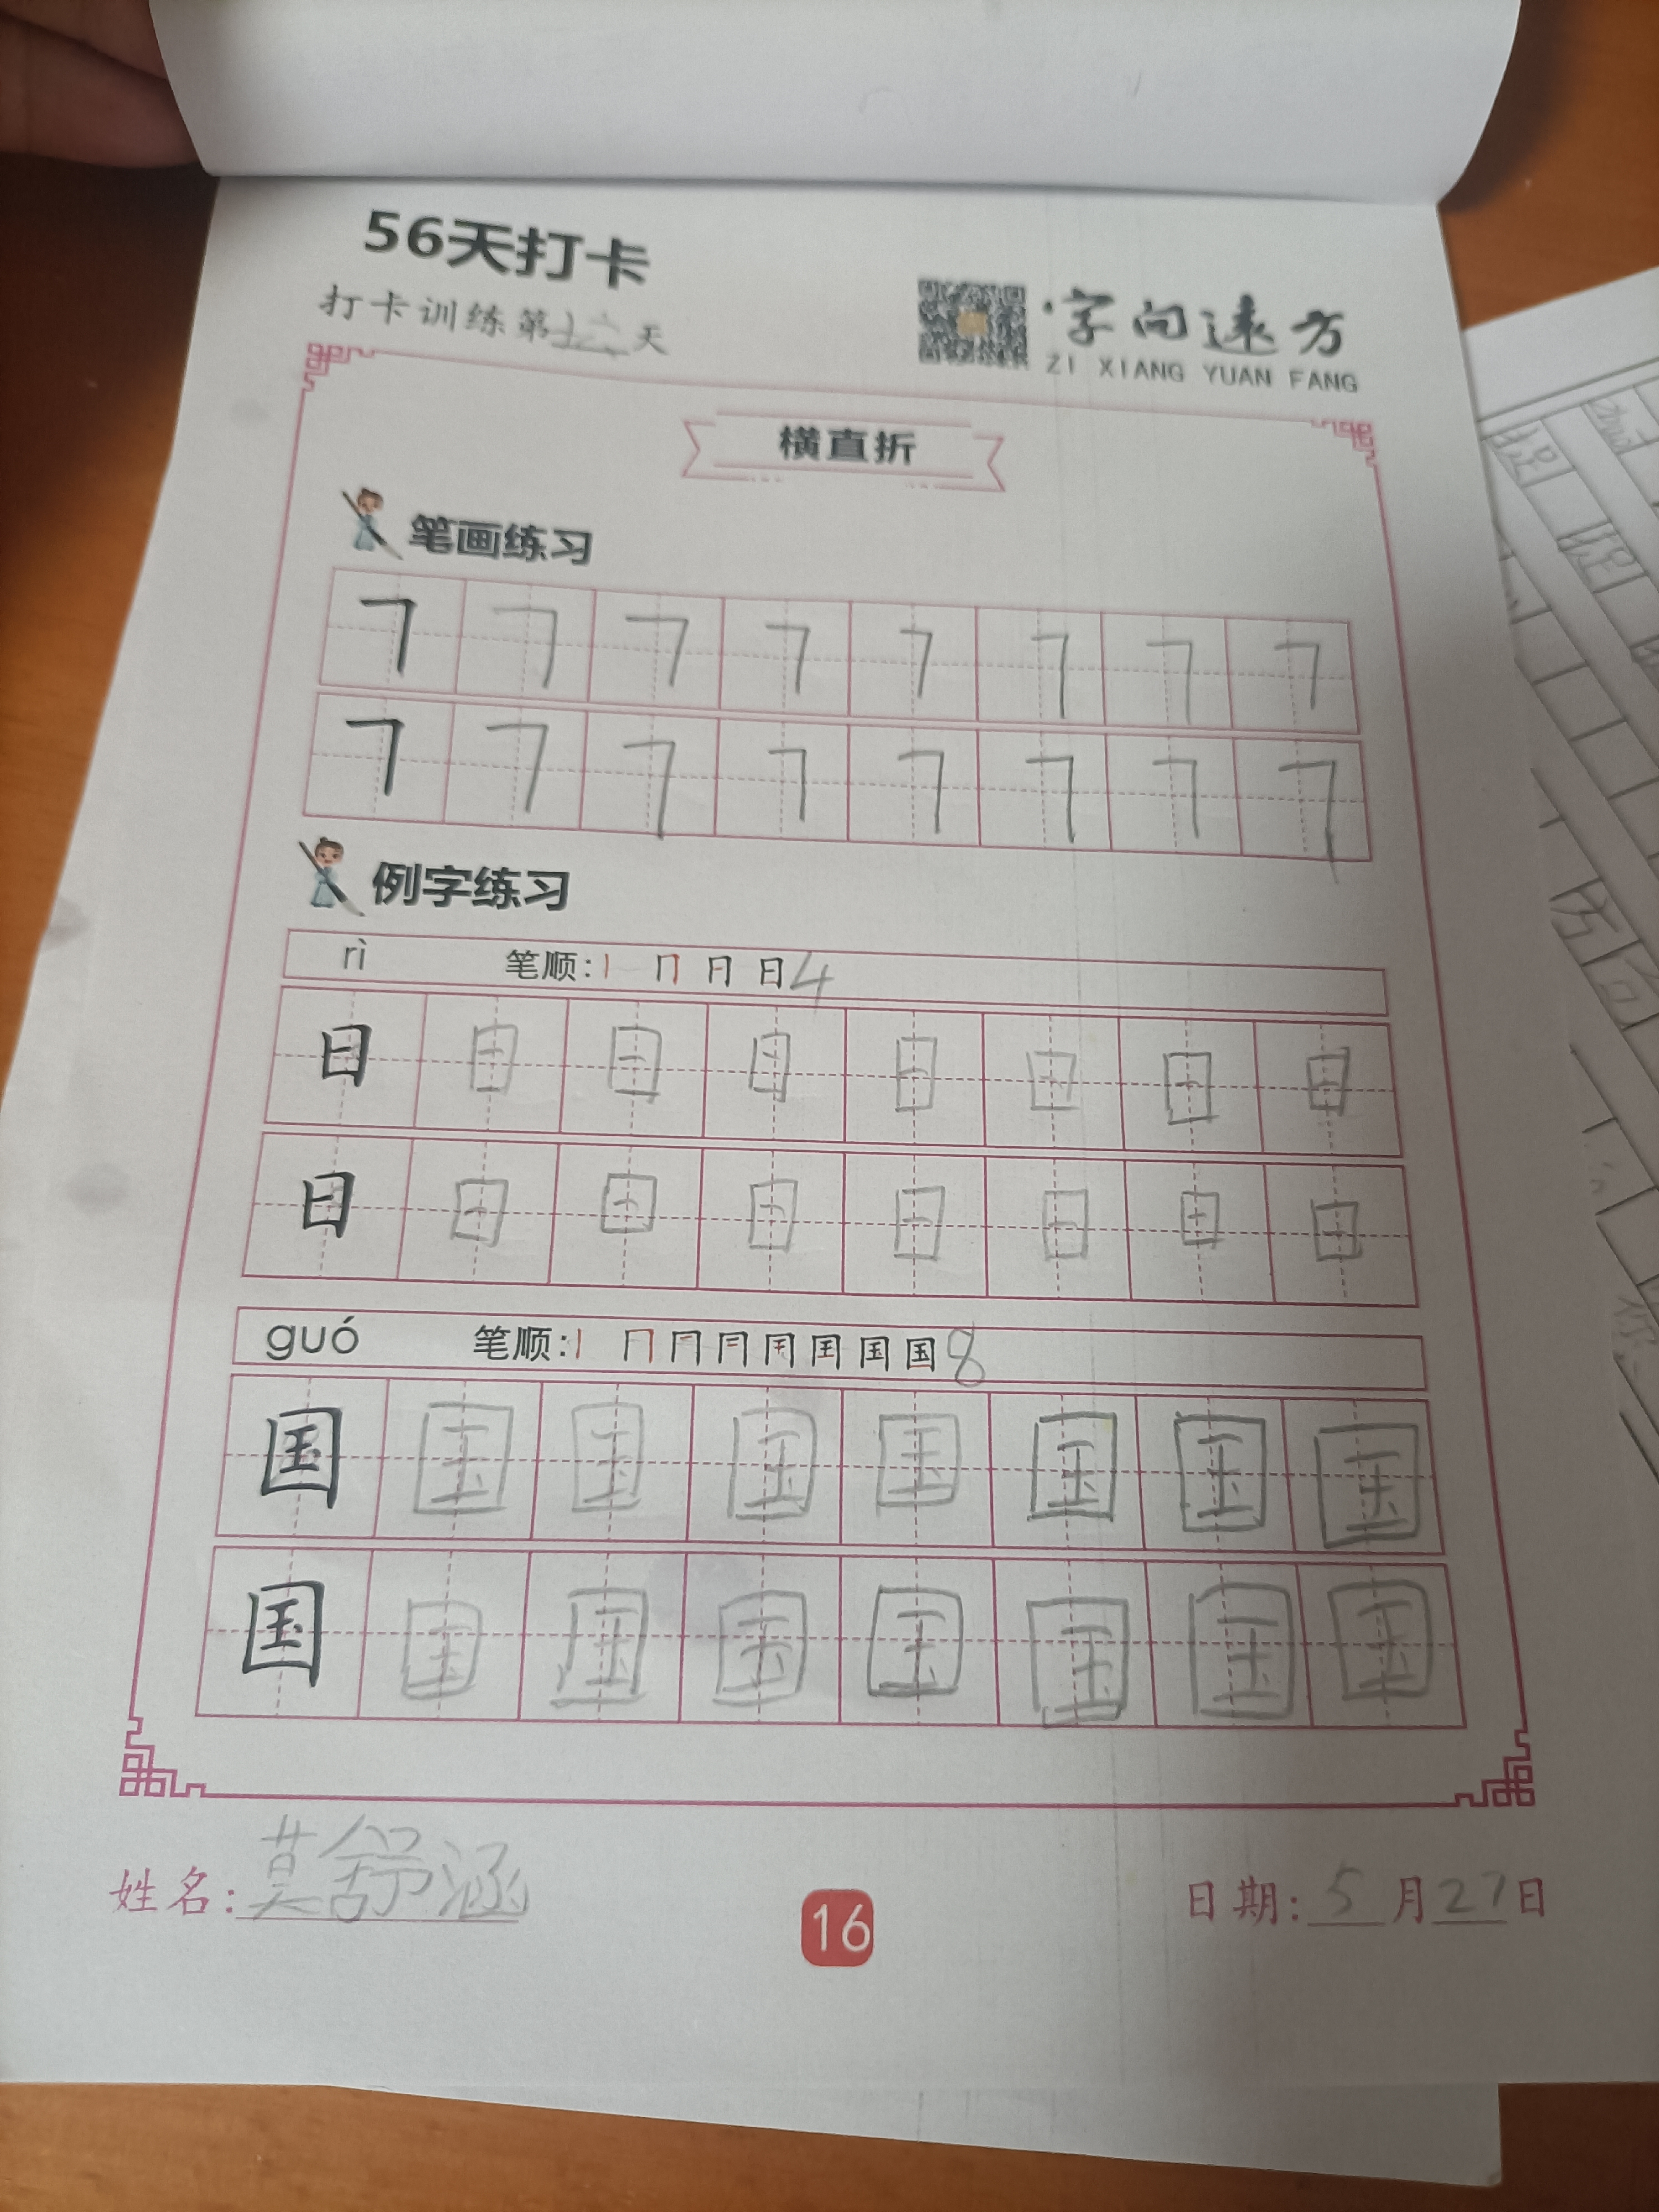 56天打卡
打卡训练第十六天
字向远方
ZI XIANG YUAN FANG
横直折
笔画练习
㇕ ㇕ ㇕ ㇕ ㇕ ㇕ ㇕ ㇕
㇕ ㇕ ㇕ ㇕ ㇕ ㇕ ㇕ ㇕
例字练习
rì 笔顺: 日 4
日 日 日 日 日 日 日 日
日 日 日 日 日 日 日 日
guó 笔顺: 国 8
国 国 国 国 国 国 国 国
国 国 国 国 国 国 国 国
姓名: 莫舒涵
16
日期: 5 月 27 日